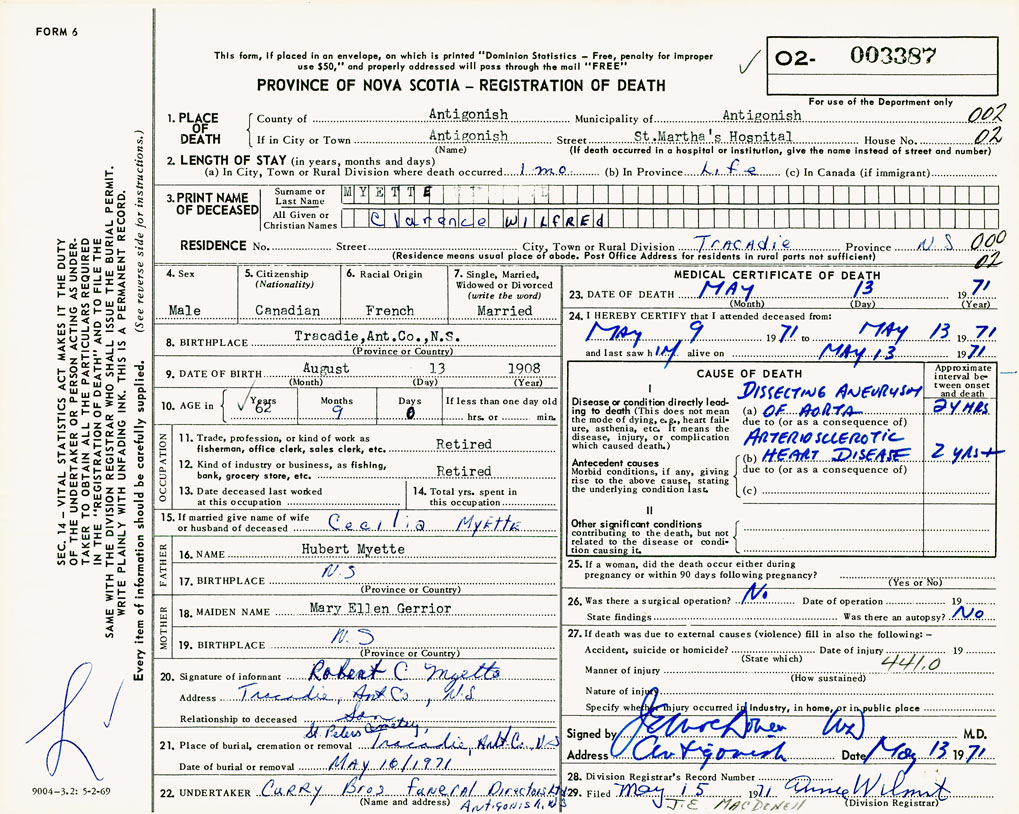 FORM 6
This form, if placed in an envelope, on which is printed "Dominion Statistics – Free, penalty for improper
use $50," and properly addressed will pass through the mail "FREE"
PROVINCE OF NOVA SCOTIA – REGISTRATION OF DEATH
O2- 003387
For use of the Department only
1. PLACE OF DEATH
County of Antigonish Municipality of Antigonish 002
If in City or Town Antigonish Street St.Martha's Hospital House No. 02
(Name) (If death occurred in a hospital or institution, give the name instead of street and number)
2. LENGTH OF STAY (in years, months and days)
(a) In City, Town or Rural Division where death occurred 1 mo. (b) In Province Life (c) In Canada (if immigrant)
3. PRINT NAME OF DECEASED
Surname or Last Name MYETTE
All Given or Christian Names Clarence WILFREd
RESIDENCE No. Street City, Town or Rural Division TRACADie Province N S 000
(Residence means usual place of abode. Post Office Address for residents in rural parts not sufficient) 02
4. Sex
Male
5. Citizenship
(Nationality)
Canadian
6. Racial Origin
French
7. Single, Married,
Widowed or Divorced
(write the word)
Married
8. BIRTHPLACE Tracadie,Ant.Co.,N.S.
(Province or Country)
9. DATE OF BIRTH August 13 1908
(Month) (Day) (Year)
10. AGE in
Years
62
Months
9
Days
0
If less than one day old
hrs. or min.
OCCUPATION
11. Trade, profession, or kind of work as
fisherman, office clerk, sales clerk, etc. Retired
12. Kind of industry or business, as fishing,
bank, grocery store, etc. Retired
13. Date deceased last worked
at this occupation
14. Total yrs. spent in
this occupation
15. If married give name of wife
or husband of deceased Cecilia MyETTE
FATHER
16. NAME Hubert Myette
17. BIRTHPLACE N.S
(Province or Country)
MOTHER
18. MAIDEN NAME Mary Ellen Gerrior
19. BIRTHPLACE N.S
(Province or Country)
20. Signature of informant Robert C Myette
Address Tracadie, Ant Co, N.S.
Relationship to deceased Son
St. Peters Cemetery,
21. Place of burial, cremation or removal Tracadie, Ant. Co. N S
Date of burial or removal MAY 16/1971
22. UNDERTAKER CURRY BROS FUNERAL DIRECTORS Ltd
(Name and address) ANTIGONISH, NS
MEDICAL CERTIFICATE OF DEATH
23. DATE OF DEATH MAY 13 1971
(Month) (Day) (Year)
24. I HEREBY CERTIFY that I attended deceased from:
MAY 9 1971 to MAY 13 1971
and last saw h IM alive on MAY 13 1971
CAUSE OF DEATH
Approximate
interval be-
tween onset
and death
I
Disease or condition directly lead-
ing to death (This does not mean
the mode of dying, e.g., heart fail-
ure, asthenia, etc. It means the
disease, injury, or complication
which caused death.)
DISSECTING ANEURYSM
(a) OF AORTA 24 HRS.
due to (or as a consequence of)
ARTERIOSCLEROTIC
(b) HEART DISEASE 2 YRS+
due to (or as a consequence of)
(c)
Antecedent causes
Morbid conditions, if any, giving
rise to the above cause, stating
the underlying condition last.
II
Other significant conditions
contributing to the death, but not
related to the disease or condi-
tion causing it.
25. If a woman, did the death occur either during
pregnancy or within 90 days following pregnancy?
(Yes or No)
26. Was there a surgical operation? No Date of operation 19
State findings Was there an autopsy? No
27. If death was due to external causes (violence) fill in also the following: –
Accident, suicide or homicide? Date of injury 19
(State which)
441.0
Manner of injury
(How sustained)
Nature of injury
Specify whether injury occurred in industry, in home, or in public place
Signed by M.D.
Address Antigonish Date May 13 1971
28. Division Registrar's Record Number
29. Filed May 15 1971 Anne Wilmot
J.E. MACDONELL (Division Registrar)
SEC. 14 – VITAL STATISTICS ACT MAKES IT THE DUTY
OF THE UNDERTAKER OR PERSON ACTING AS UNDER-
TAKER TO OBTAIN ALL THE PARTICULARS REQUIRED
IN THE "REGISTRATION OF DEATH" AND TO FILE THE
SAME WITH THE DIVISION REGISTRAR WHO SHALL ISSUE THE BURIAL PERMIT.
WRITE PLAINLY WITH UNFADING INK. THIS IS A PERMANENT RECORD.
Every item of information should be carefully supplied. (See reverse side for instructions.)
9004-3.2: 5-2-69